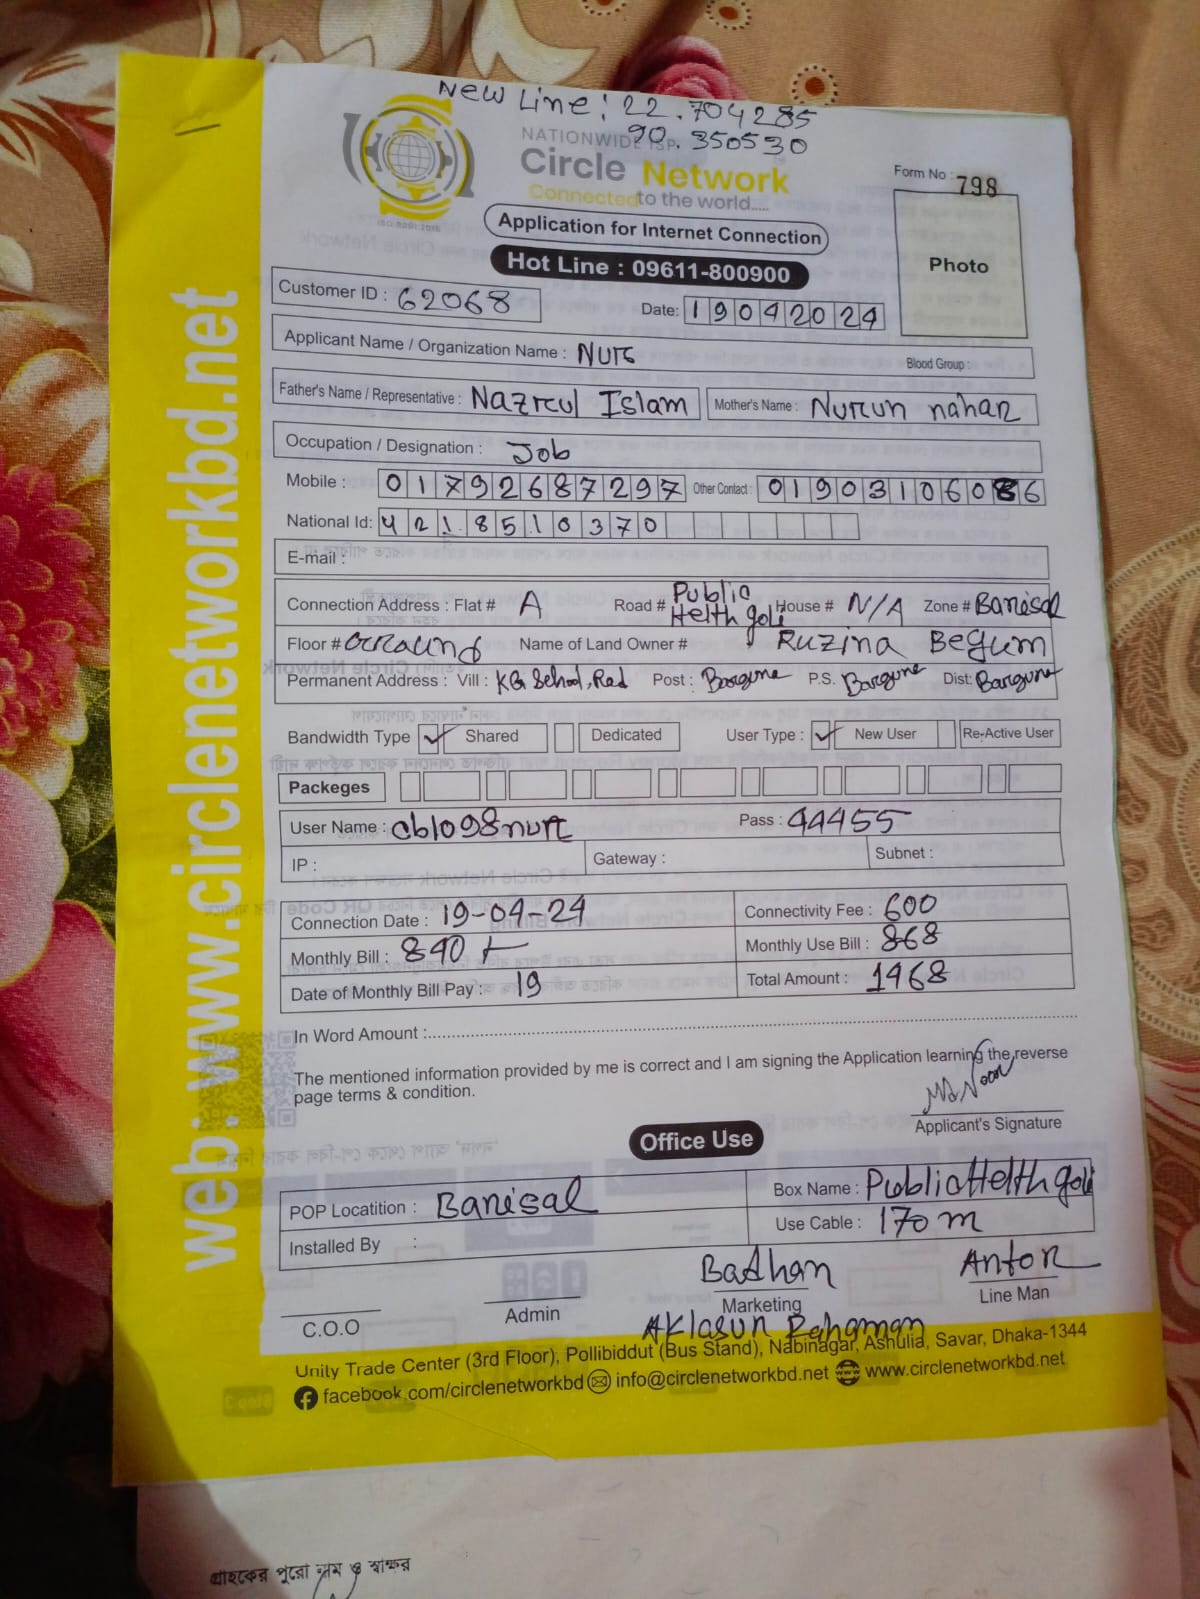 New Line: 22.704285
90.350530
NATIONWIDE ISP
Circle Network
Connected to the world.....
ISO 9001:2015
Form No : 798
Application for Internet Connection
Photo
Hot Line : 09611-800900
Customer ID : 62068
Date: 19042024
Applicant Name / Organization Name : Nur
Blood Group :
Father's Name / Representative : Nazrul Islam Mother's Name : Nurun nahar
Occupation / Designation : Job
Mobile : 01792687297 Other Contact : 01903106086
National Id: 4218510370
E-mail :
Connection Address : Flat # A Road # Public Helth goli House # N/A Zone # Barisal
Floor # Ground Name of Land Owner # Ruzina Begum
Permanent Address : Vill : KG School, Rod Post : Barguna P.S. Barguna Dist: Barguna
Bandwidth Type ✓ Shared Dedicated User Type : ✓ New User Re-Active User
Packeges
User Name : cb1098nur Pass : 44455
IP : Gateway : Subnet :
Connection Date : 19-04-24 Connectivity Fee : 600
Monthly Bill : 840 Monthly Use Bill : 868
Date of Monthly Bill Pay : 19 Total Amount : 1468
In Word Amount :
The mentioned information provided by me is correct and I am signing the Application learning the reverse
page terms & condition.
Md Noor
Applicant's Signature
Office Use
POP Locatition : Barisal Box Name : Public Helth goli
Installed By : Use Cable : 170 m
Badhan Antor
C.O.O Admin Marketing Line Man
Unity Trade Center (3rd Floor), Pollibiddut (Bus Stand), Nabinagar, Ashulia, Savar, Dhaka-1344
facebook.com/circlenetworkbd info@circlenetworkbd.net www.circlenetworkbd.net
web: www.circlenetworkbd.net
গ্রাহকের পুরো নাম ও স্বাক্ষর